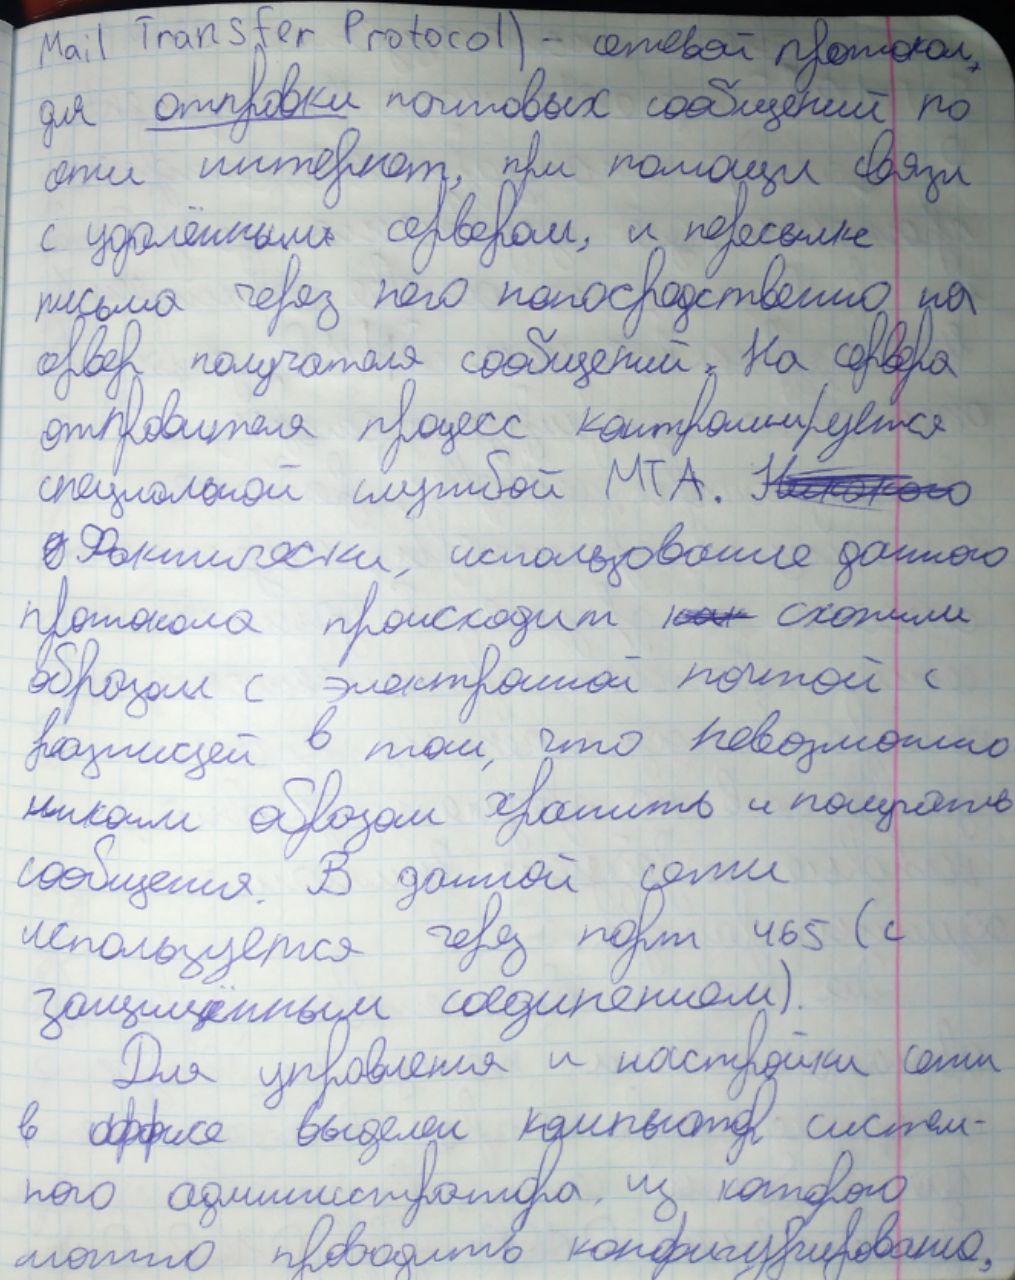 Mail Transfer Protocol) - сетевой протокол,
для отправки почтовых сообщений по
сети интернет, при помощи связи
с удалённым сервером, и пересылке
письма через него непосредственно на
сервер получателя сообщений. На сервере
отправителя процесс контролируется
специальной службой МТА.
Фактически, использование данного
протокола происходит как схожим
образом с электронной почтой с
разницей в том, что невозможно
никаим образом хранить и получать
сообщения. В данной сети
используется через порт 465 (с
защищённым соединением).
Для управления и настройки сети
в оффисе выделен компьютер систем-
ного администратора, из которого
можно проводить конфигурирование,